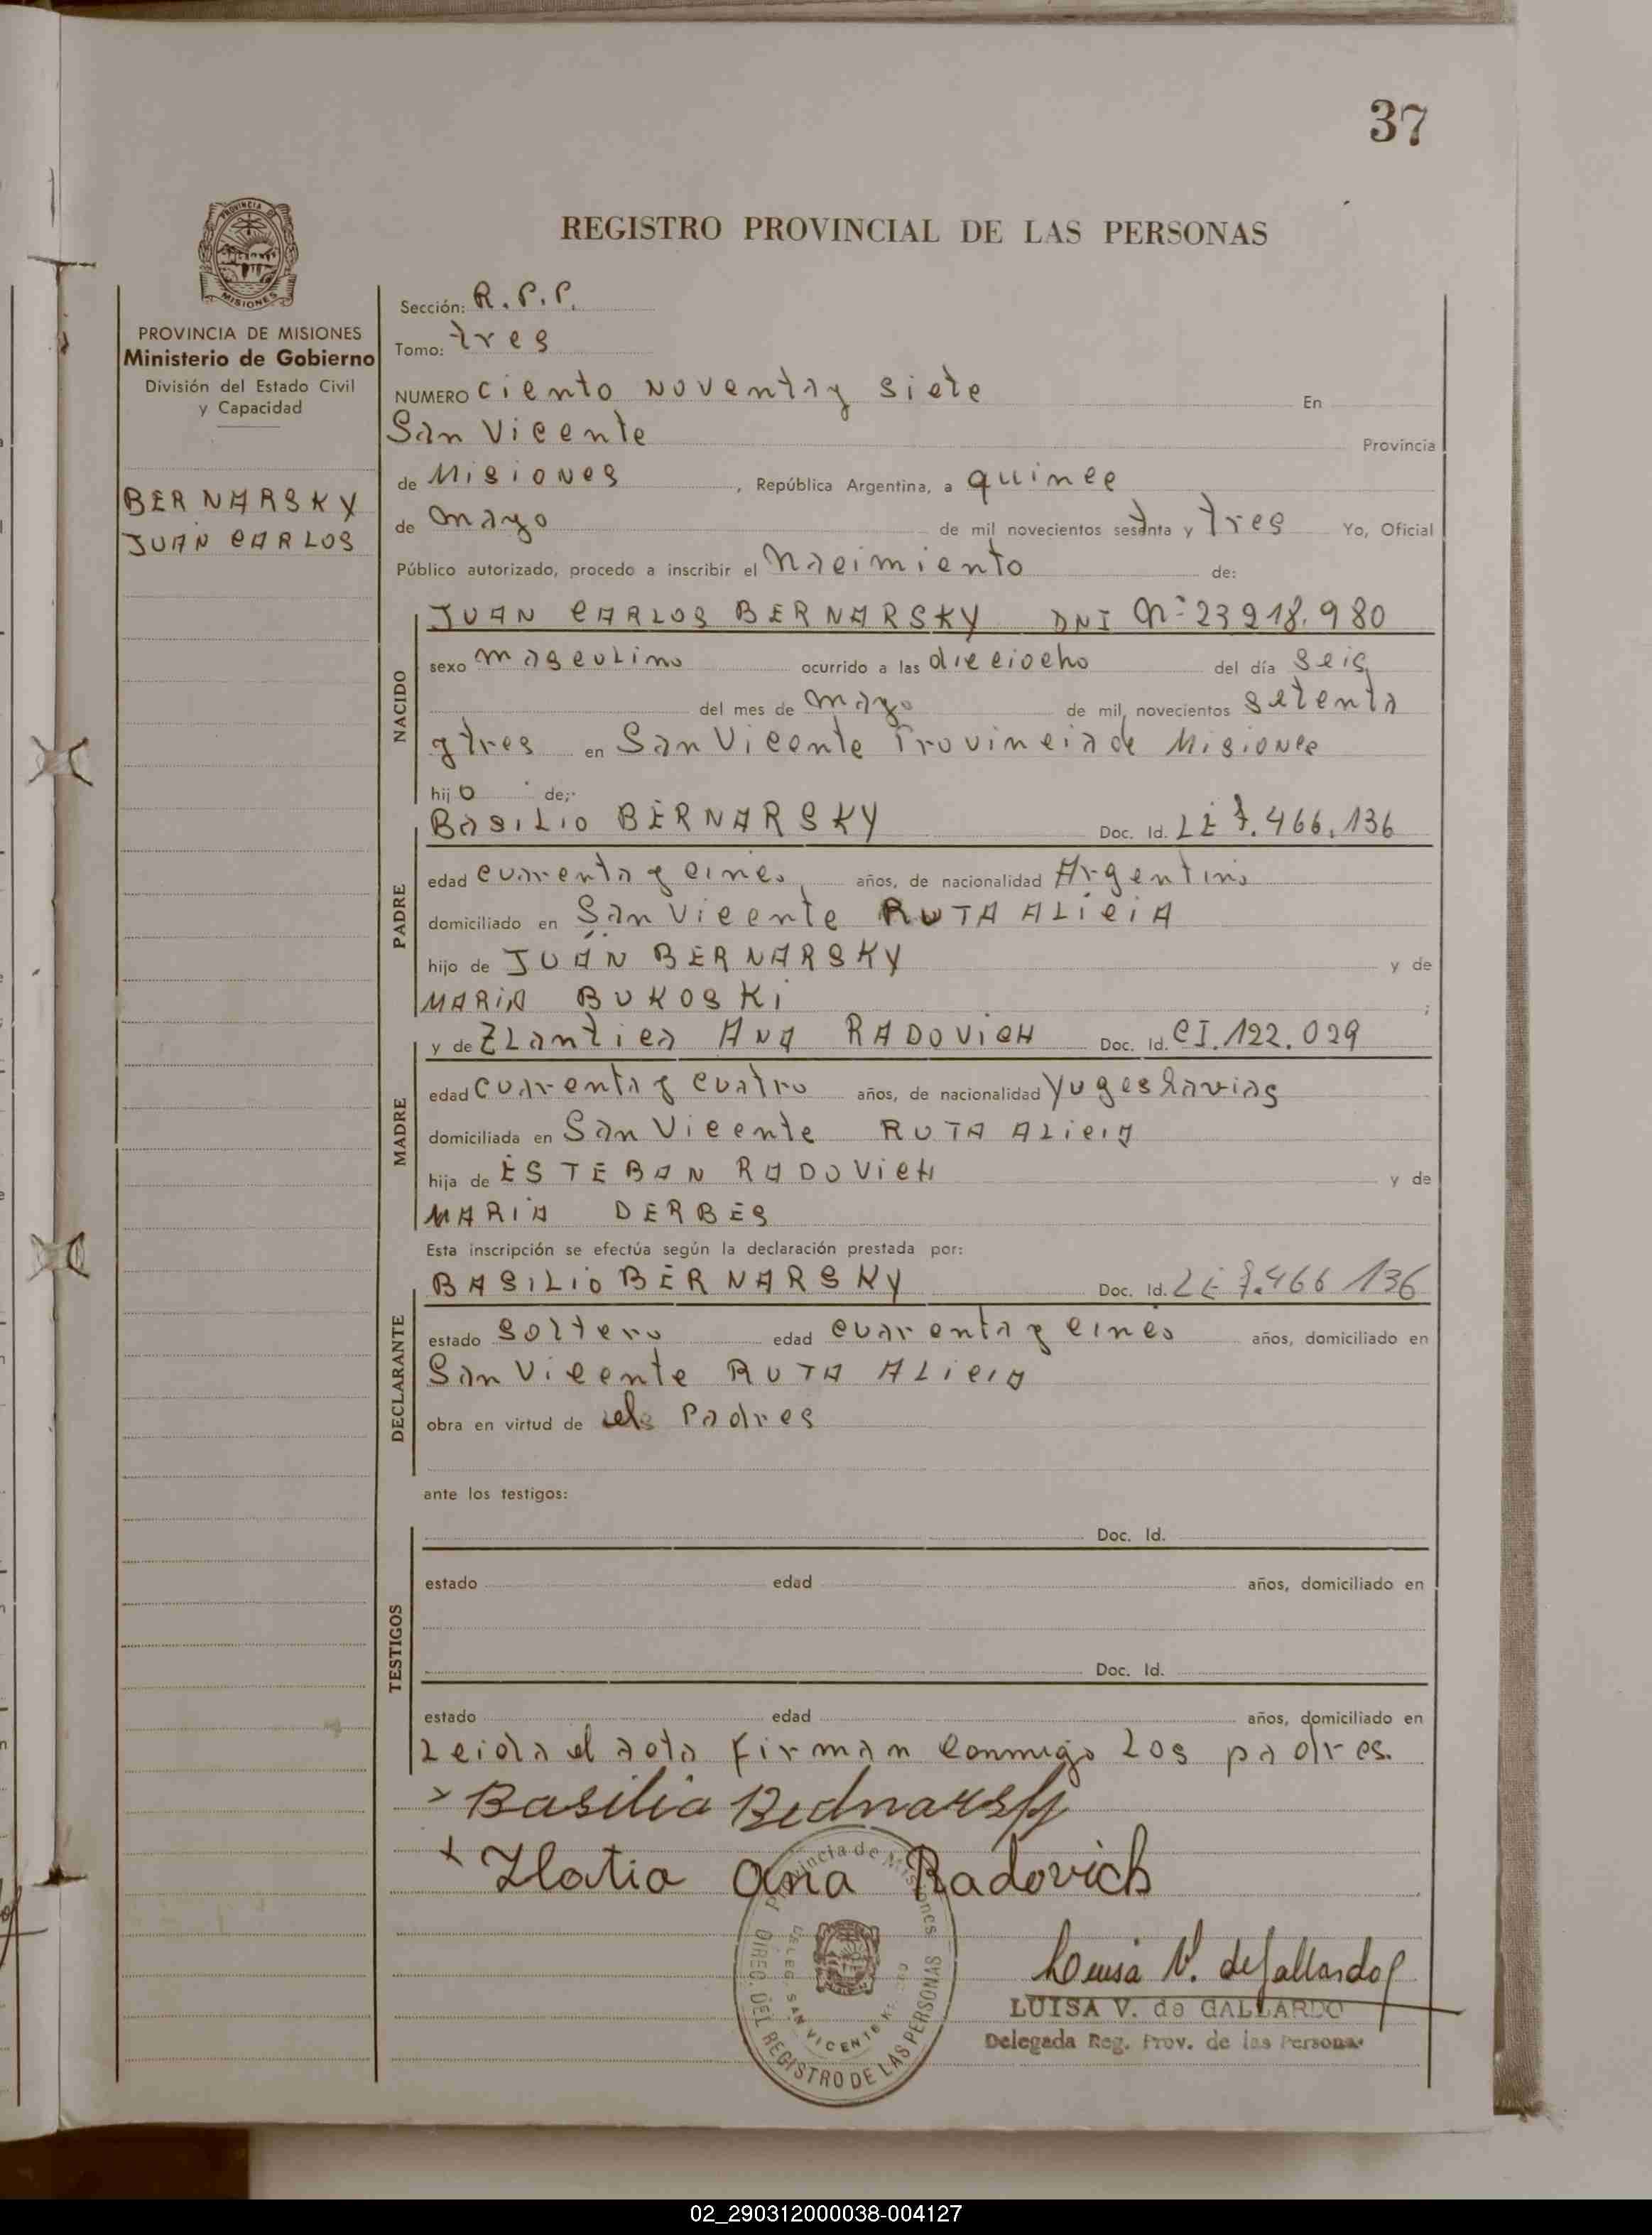 37
REGISTRO PROVINCIAL DE LAS PERSONAS
PROVINCIA DE MISIONES
PROVINCIA DE MISIONES
Ministerio de Gobierno
División del Estado Civil
y Capacidad
BERNARSKY
JUAN CARLOS
Sección: R.P.P.
Tomo: tres
NUMERO ciento noventa y siete En
San Vicente Provincia
de Misiones, República Argentina, a quince
de mayo de mil novecientos setenta y tres Yo, Oficial
Público autorizado, procedo a inscribir el nacimiento de:
NACIDO
JUAN CARLOS BERNARSKY DNI Nº 23 218.980
sexo masculino ocurrido a las dieciocho del día seis
del mes de mayo de mil novecientos setenta
y tres en San Vicente Provincia de Misiones
hijo de:
PADRE
Basilio BERNARSKY Doc. Id. LE 7.466.136
edad cuarenta y cinco años, de nacionalidad Argentino
domiciliado en San Vicente RUTA ALICIA
hijo de JUAN BERNARSKY y de
MARIA BUKOSKi;
MADRE
y de Zlantica Ana RADOVICH Doc. Id. CI.122.029
edad cuarenta y cuatro años, de nacionalidad Yugoslavias
domiciliada en San Vicente RUTA ALICIA
hija de ESTEBAN RADOVICH y de
MARIA DERBES
Esta inscripción se efectúa según la declaración prestada por:
DECLARANTE
BASILIO BERNARSKY Doc. Id. LE 7.466 136
estado soltero edad cuarenta y cinco años, domiciliado en
San Vicente RUTA ALICIA
obra en virtud de Padres
ante los testigos:
TESTIGOS
Doc. Id.
estado edad años, domiciliado en
Doc. Id.
estado edad años, domiciliado en
Leida el acta firman conmigo los padres.
Basilia Bednarsky
Zlatia Ana Radovich
Provincia de Misiones
DELEG. SAN VICENTE
DIREC. DEL REGISTRO DE LAS PERSONAS
Luisa V. de Gallardo
LUISA V. de GALLARDO
Delegada Reg. Prov. de las Personas
02_290312000038-004127